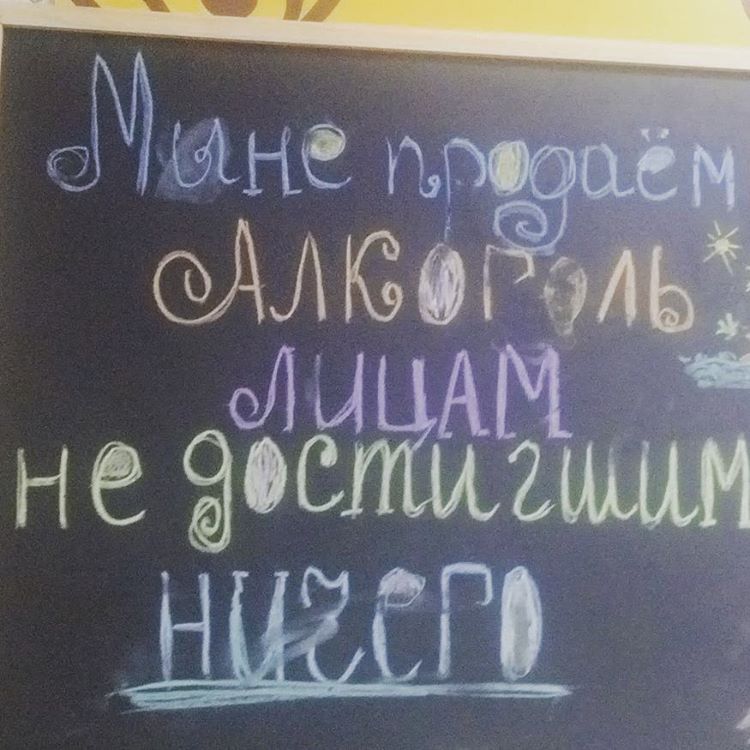 Мы не продаём
Алкоголь
лицам
не достигшим
ничего